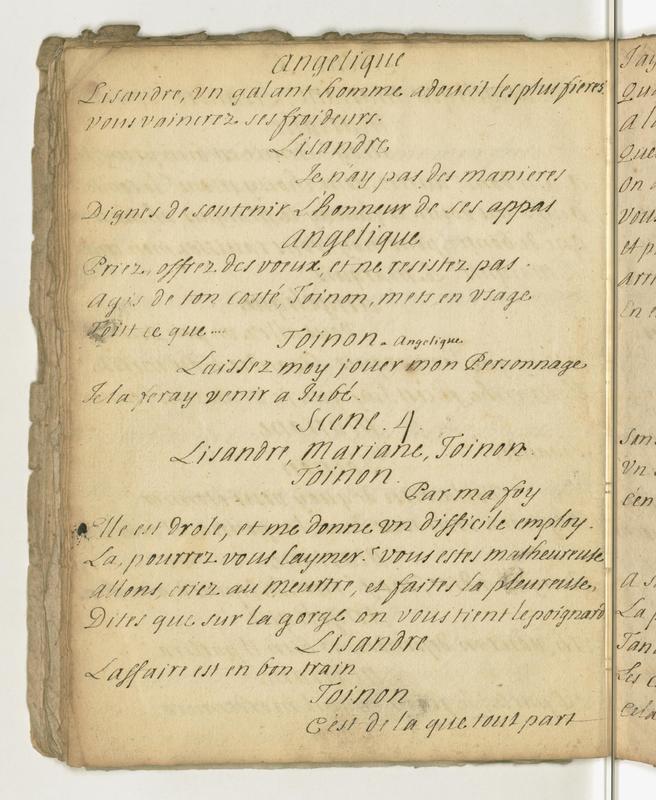 Angelique
Lisandre, vn galant homme adoucit les plus fieres
vous vaincrez ses froideurs.
Lisandre
Je n'ay pas des manieres
Dignes de soutenir L'honneur de ses appas
angelique
Priez, offrez des voeux, et ne resistez pas.
Agis de ton costé, Toinon, mets en vsage
Tout ce que....
Toinon. a Angelique
Laissez moy jouer mon Personnage
Je la feray venir a Jubé.
Scene. 4.
Lisandre, Mariane, Toinon.
Toinon.
Par ma foy
Elle est drole, et me donne vn difficile employ.
La, pourrez vous l'aymer. vous estes malheureuse
allons, criez au meurtre, et faites la pleureuse,
Dites que sur la gorge on vous tient le poignard
Lisandre
L'affaire est en bon train
Toinon
C'est de la que tout part
J'ay
a la
on
vous
et p
En
vn
a
La p
Les
cela